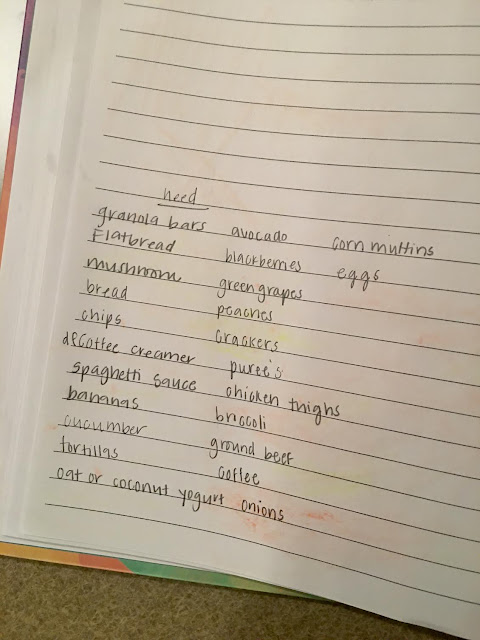 need
granola bars avocado corn muffins
Flatbread blackberries eggs
mushroom green grapes
bread peaches
chips crackers
df coffee creamer puree's
spaghetti sauce chicken thighs
bananas broccoli
cucumber ground beef
tortillas coffee
oat or coconut yogurt onions